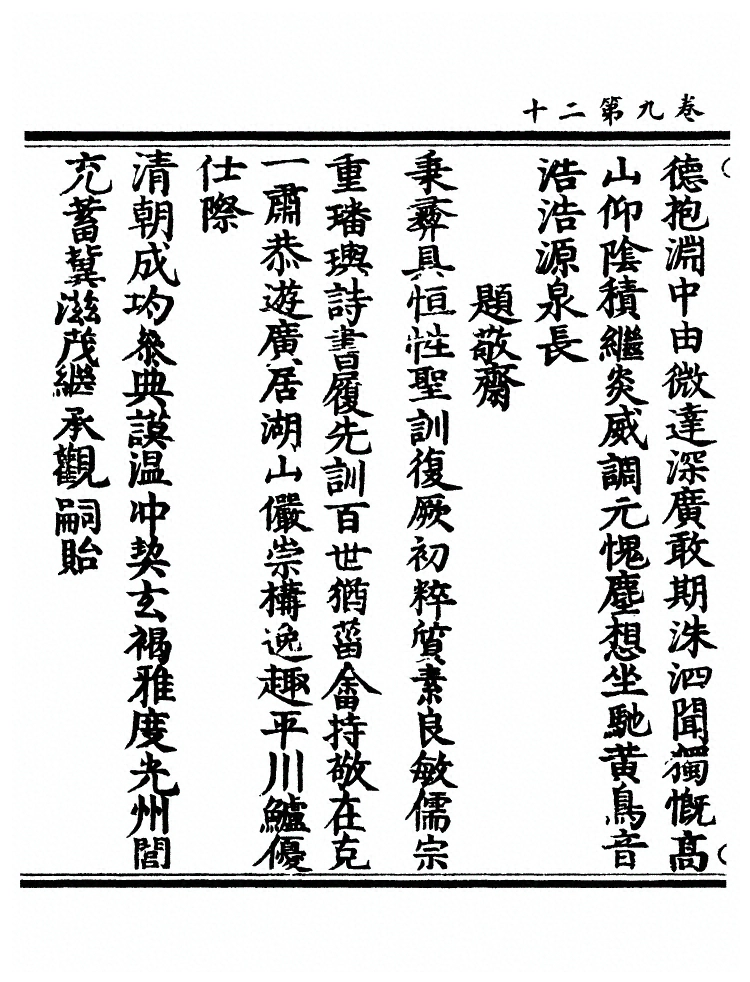 卷九第二十
德抱淵中由微達深廣敢期洙泗聞獨慨高
山仰陰積繼炎威調元愧塵想坐馳黃鳥音
浩浩源泉長
題敬齋
秉彞具恒性聖訓復厥初粹質素良敏儒宗
重璠璵詩書履先訓百世猶菑畬持敬在克
一肅恭遊廣居湖山儼崇構逸趣平川鱸優
仕際
清朝成均叅典謨温冲契玄褐雅度光州閭
充蓄冀滋茂繼承觀嗣貽